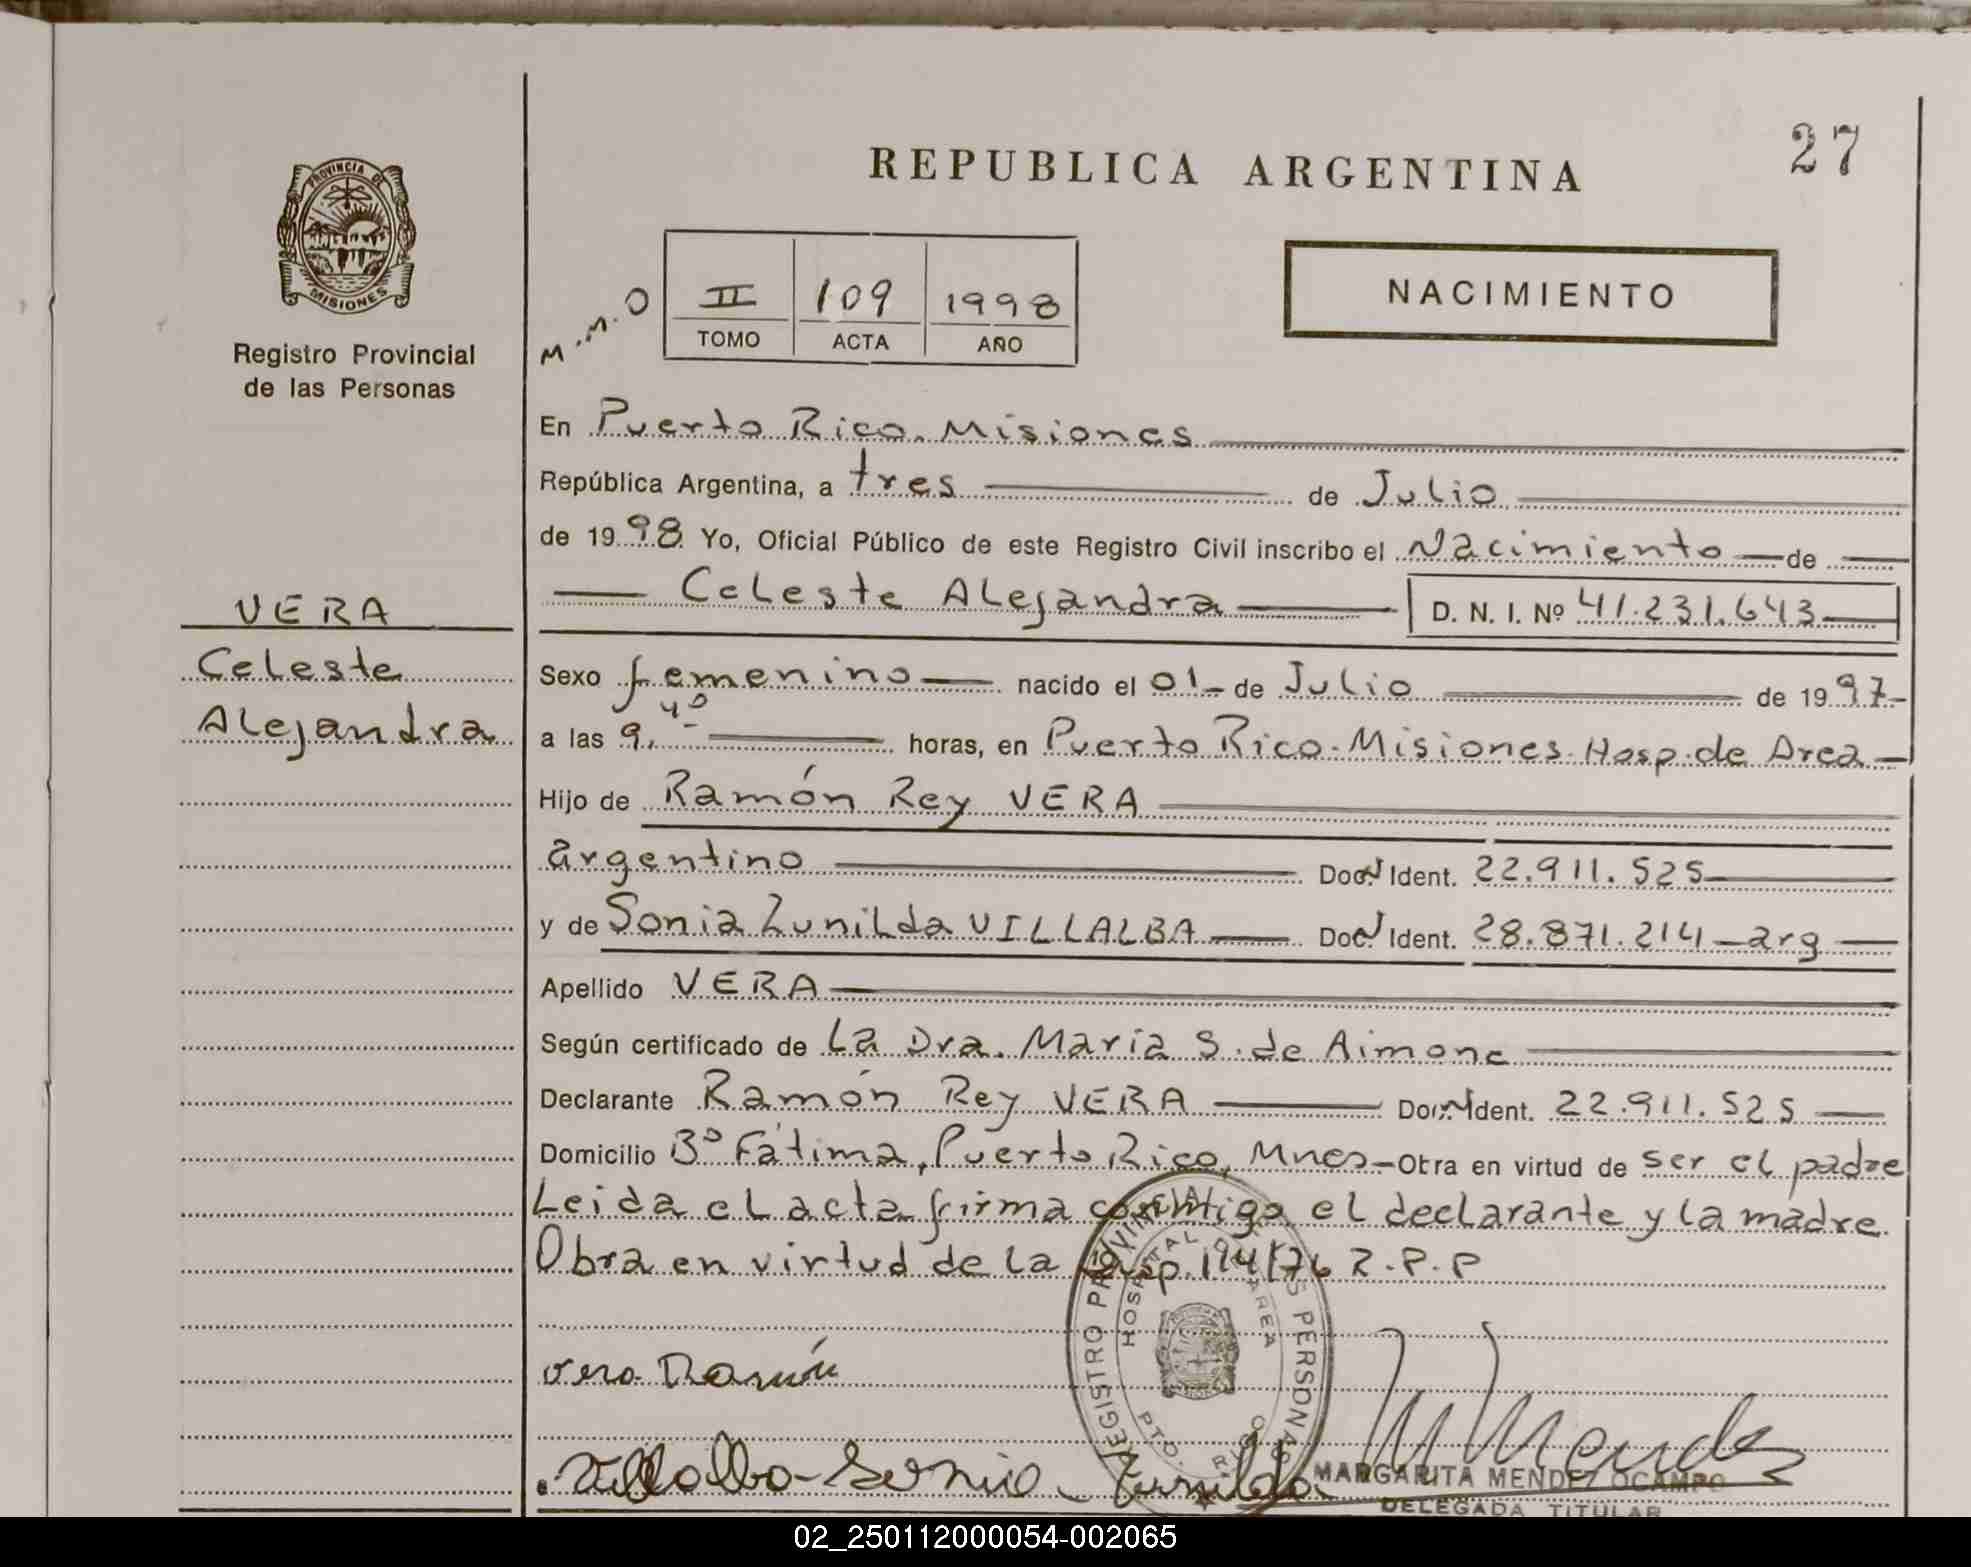 27
REPUBLICA ARGENTINA
PROVINCIA DE
MISIONES
Registro Provincial
de las Personas
M.M.O
II 109 1998
TOMO ACTA AÑO
NACIMIENTO
En Puerto Rico. Misiones
República Argentina, a tres de Julio
de 1998 Yo, Oficial Público de este Registro Civil inscribo el Nacimiento de
Celeste Alejandra D. N. I. Nº 41.231.643
VERA
Celeste
Alejandra
Sexo femenino nacido el 01 de Julio de 1997
a las 9,40 horas, en Puerto Rico. Misiones. Hosp. de Area
Hijo de Ramón Rey VERA
argentino Doc. Ident. 22.911.525
y de Sonia Zunilda VILLALBA Doc. Ident. 28.871.214 arg
Apellido VERA
Según certificado de La Dra. Maria S. de Aimone
Declarante Ramón Rey VERA Doc. Ident. 22.911.525
Domicilio Bº Fátima, Puerto Rico, Mnes- Obra en virtud de ser el padre
Leida el acta firma conmigo el declarante y la madre.
Obra en virtud de la Disp. 194/76 R.P.P
Vera Ramón
Villalba Sonia Zunilda
REGISTRO PROVINCIAL DE LAS PERSONAS
HOSPITAL DE AREA
PTO. RICO
M Mendez
MARGARITA MENDEZ OCAMPO
DELEGADA TITULAR
02_250112000054-002065